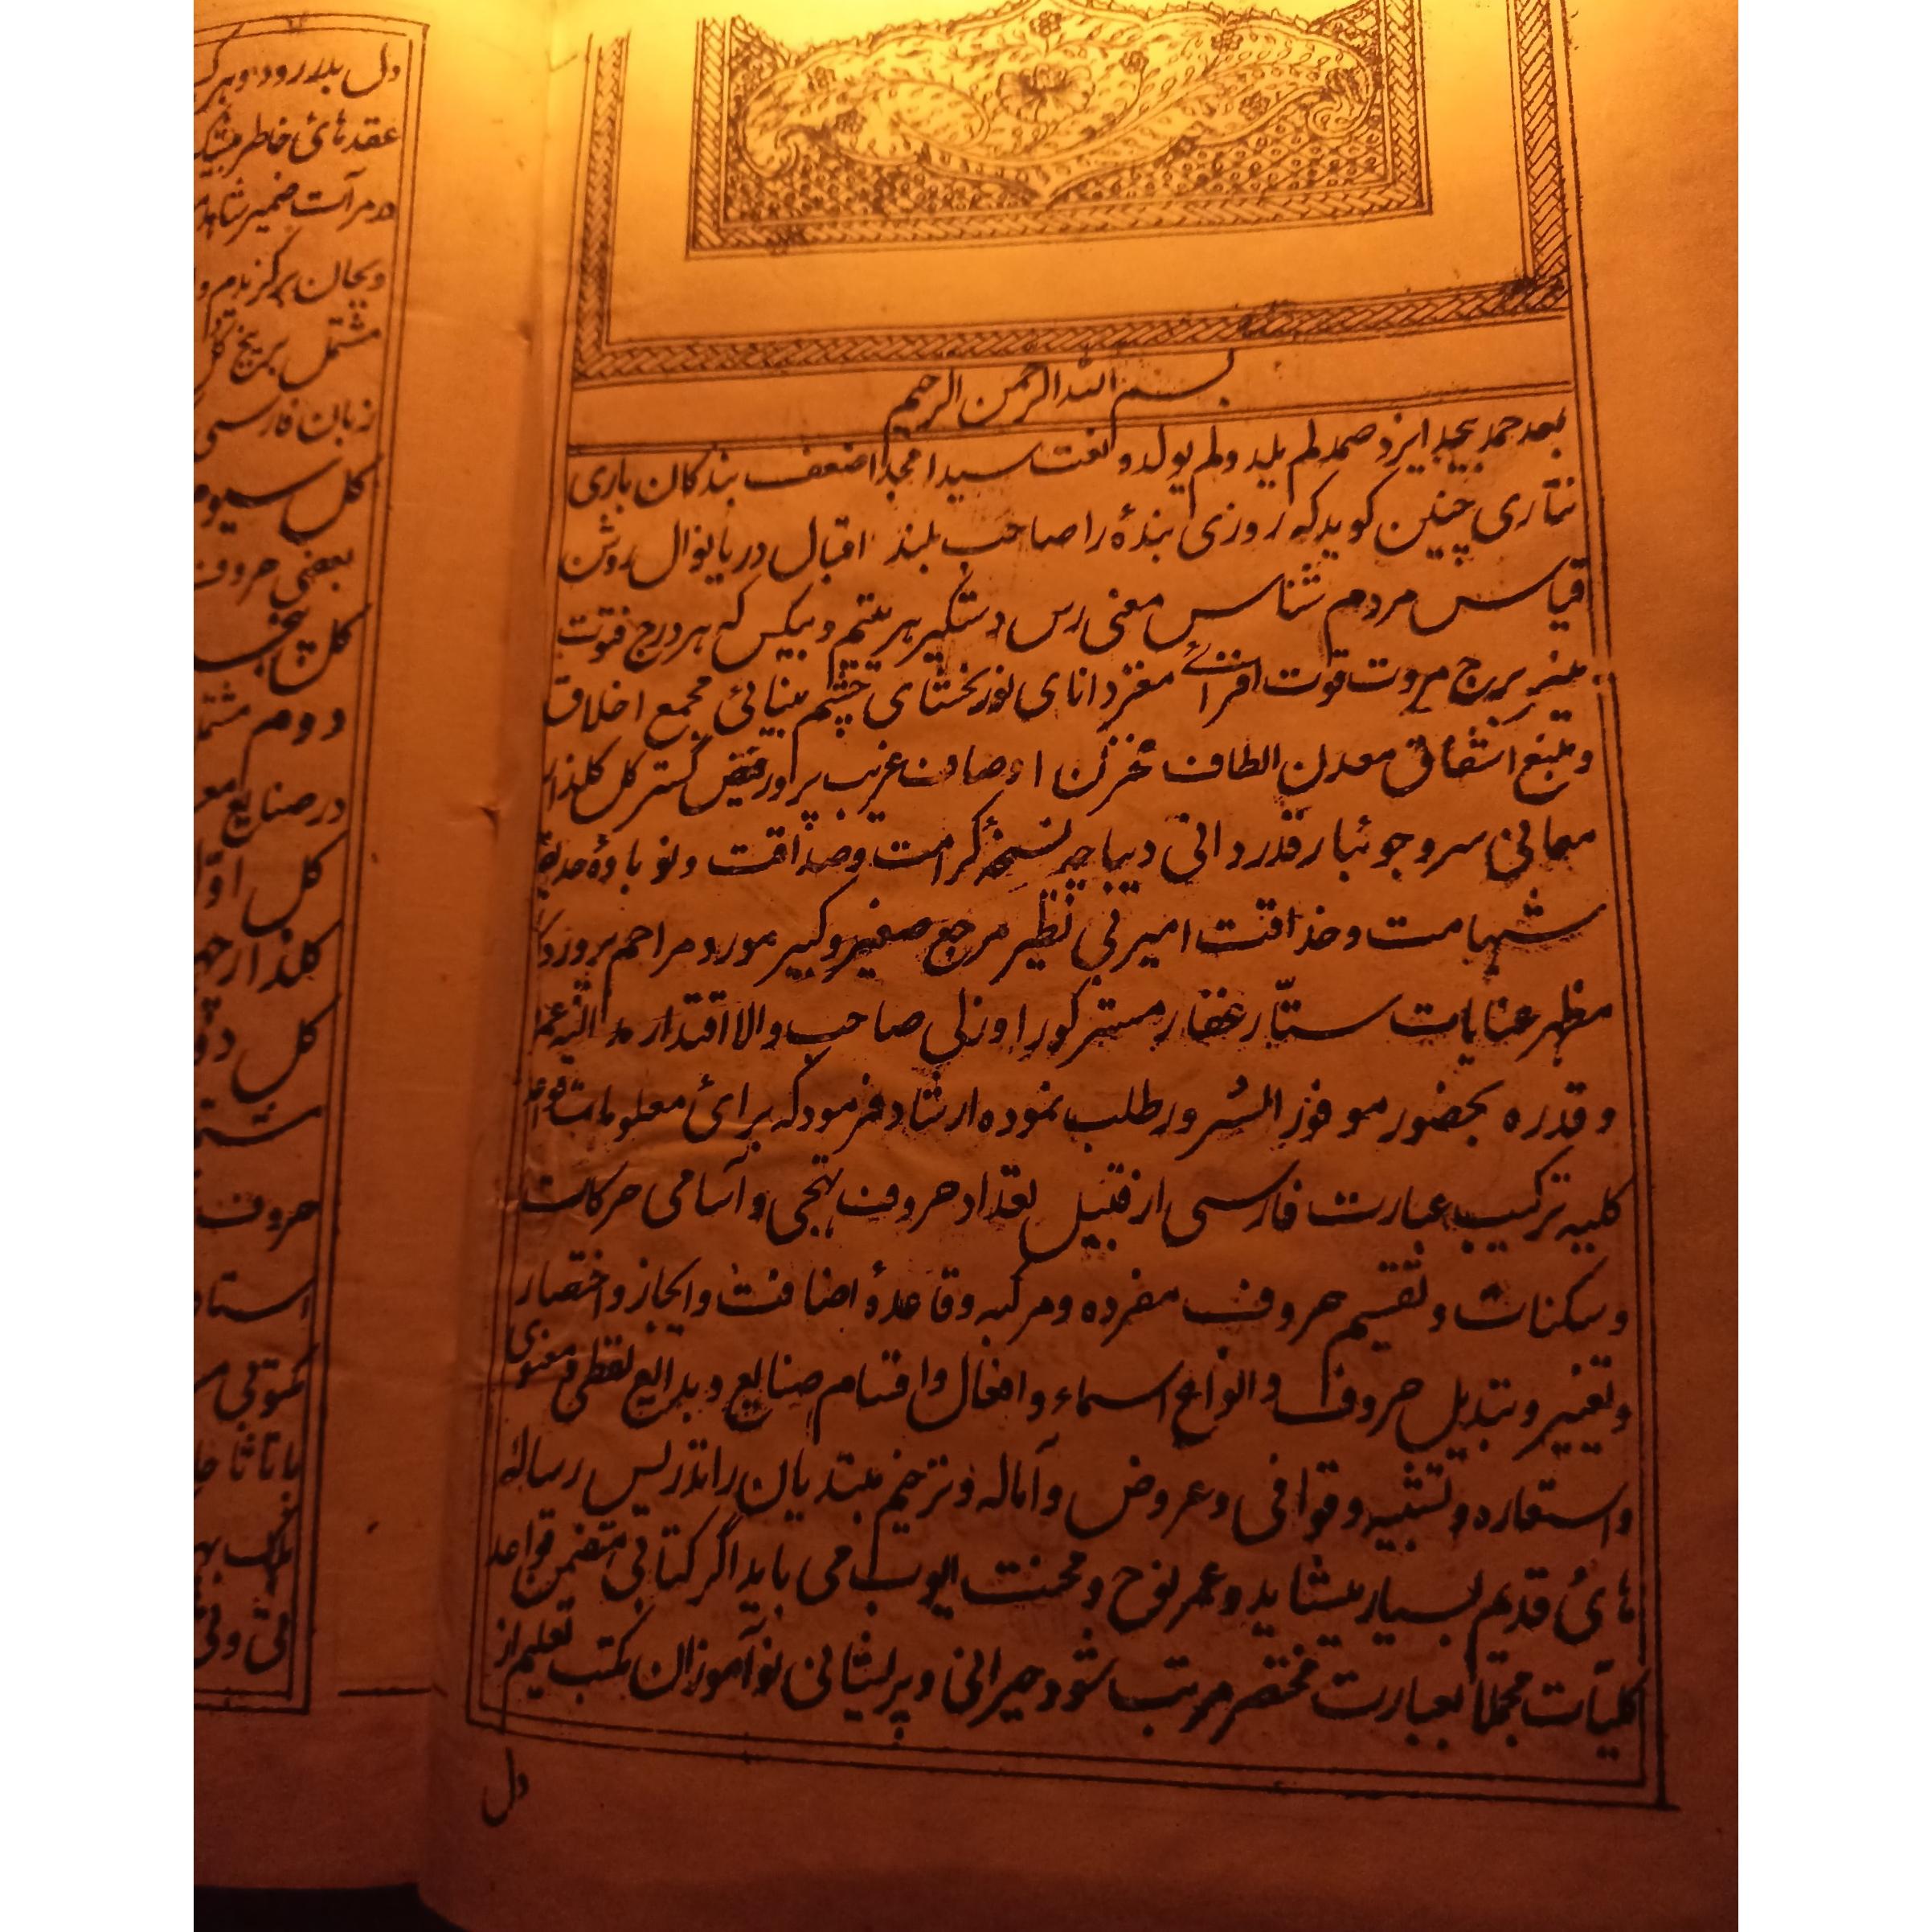 بسم الله الرحمن الرحیم
بعد حمد بیحد ایزد صمد لم یلد ولم یولد و نعت سید امجد اضعف بندکان باری
نثاری چنین کوید که روزی بندهٔ را صاحب بلند اقبال دریا نوال روشن
قیاس مردم شناس معنی رس دستکیر هر یتیم و بیکس که هر درج فتوت
منیر برج مروت قوت افزائے مغز دانای نور بخشای چشم بینائی مجمع اخلاق
و منبع اشفاق معدن الطاف مخزن اوصاف غریب پرور فیض گستر کل کلذار
معانی سرو جوئبار قدردانی دیباچه نسخهٔ کرامت وصداقت و نوباوهٔ حدیقه
شهامت و حذاقت امیر بی نظیر مرجع صغیر و کبیر مورد مراحم پروردکا
مظهر عنایات ستّار غفار مستر کور اوزلی صاحب والا اقتدار
و قدره بحضور موفوز السُرور طلب نموده ارشاد فرمود که برائ معلومات قواعد
کلیه ترکیب عبارت فارسی از قبیل تعداد حروف تهجی و آسامی حرکات
و سکنات و تقسیم حروف مفرده و مرکبه و قاعدهٔ اضافت و ایجاز و اختصار
و تغییر و تبدیل حروف و انواع اسماء و افعال و اقسام صنایع و بدایع لفظی و معنوی
و استعاره و تشبیه و قوافی و عروض و آماله و ترخیم مبتدیان را تدریس رساله
هائ قدیم بسیار میشاید و عمر نوح و محنت ایوب می باید اگر کتابی متضمن قواعد
کلیّات مجملاً بعبارت مختصر مرتب شود حیرانی و پریشانی نوآموزان مکتب تعلیم از
دل
دل بدر رود و هر
عقدهائ خاطر
در مرآت ضمیر
و بجان برکزیدم و
مشتمل بر پنج کل
زبان فارسی
کل سیوم
بعضی حروف
کل پنجم
دوم
در صنایع
کل اوّل
کلذار چهارم
کل دوم
حروف
با تا ثا